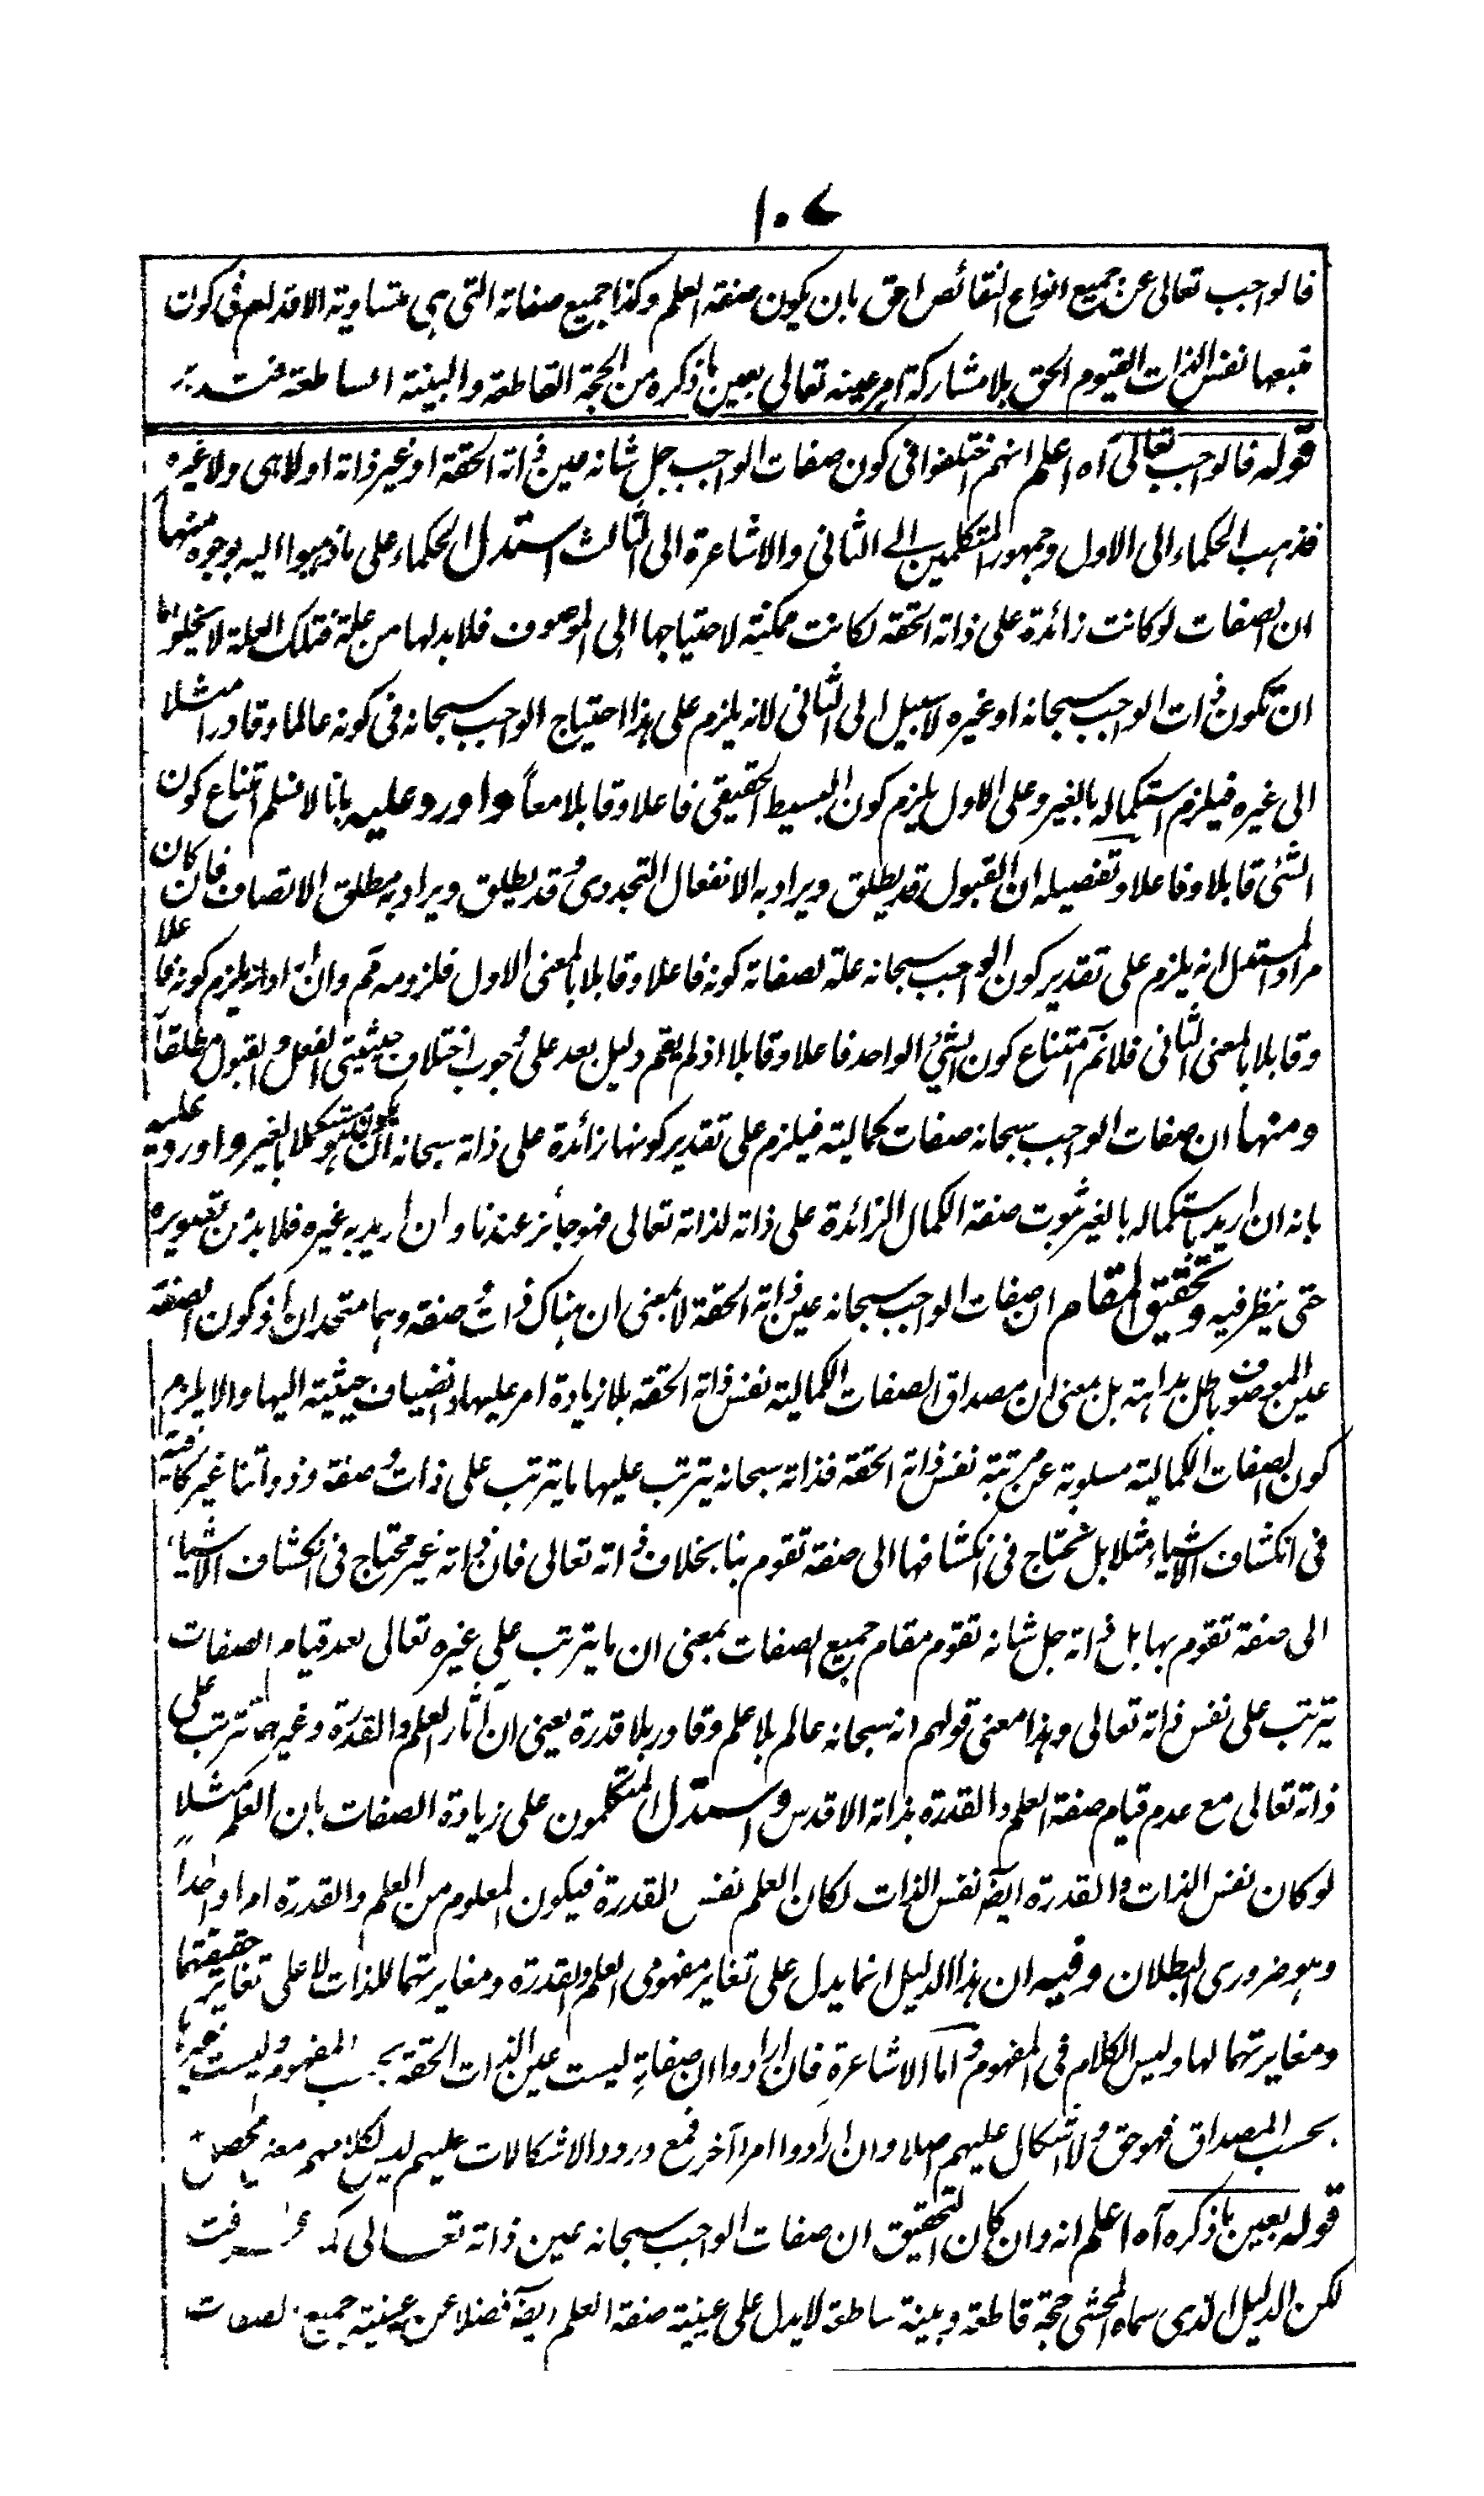 ١٠٧
فالواجب تعالى عن جميع انواع النقائص احق بان يكون صفة العلم وكذا جميع صفاته التي هي متساوية الاقدام في كون
منبعها نفس الذات القيوم الحق بلا مشاركة امر عينه تعالى بعين ما ذكره من الحجة القاطعة والبينة الساطعة فتدبر
قوله فالواجب تعالى آه اعلم انهم اختلفوا في كون صفات الواجب جل شانه عين ذاته الحقة او غير ذاته او لا هي ولا غيره
فذهب الحكماء الى الاول وجمهور المتكلمين الى الثاني والاشاعرة الى الثالث استدل الحكماء على ما ذهبوا اليه بوجوه منها
ان الصفات لو كانت زائدة على ذاته الحقة لكانت ممكنة لاحتياجها الى الموصوف فلا بد لها من علة فتلك العلة لا يخلو اما
ان تكون ذات الواجب سبحانه او غيره لا سبيل الى الثاني لانه يلزم على هذا احتياج الواجب سبحانه في كونه عالما وقادرا مثلا
الى غيره فيلزم استكماله بالغير وعلى الاول يلزم كون البسيط الحقيقي فاعلا وقابلا معاً واورد عليه بانا لا نسلم امتناع كون
الشئ قابلا وفاعلا وتفصيله ان القبول قد يطلق ويراد به الانفعال التجددي وقد يطلق ويراد به مطلق الاتصاف فان كان
مراد المستدل انه يلزم على تقدير كون الواجب سبحانه علة لصفاته كونه فاعلا وقابلا بالمعنى الاول فلزومه مم وان اراد انه يلزم كونه فاعلا
وقابلا بالمعنى الثاني فلانم امتناع كون الشئ الواحد فاعلا وقابلا اذ لم يقم دليل بعد على وجوب اختلاف حيثيتي الفعل والقبول مطلقاً
ومنها ان صفات الواجب سبحانه صفات كمالية فيلزم على تقدير كونها زائدة على ذاته سبحانه ان يكون هو مستكملا بالغير واورد عليه
بانه ان اريد باستكماله بالغير ثبوت صفة الكمال الزائدة على ذاته لذاته تعالى فهو جائز عندنا وان اريد به غيره فلا بد من تصويره
حتى ينظر فيه وتحقيق المقام ان صفات الواجب سبحانه عين ذاته الحقة لا بمعنى ان هناك ذاتٌ وصفة وهما متحدان اذ كون الصفة
عين الموصوف باطل بداهة بل بمعنى ان مصداق الصفات الكمالية نفس ذاته الحقة بلا زيادة امر عليها وانضياف حيثية اليها والا يلزم
كون الصفات الكمالية مسلوبة عن مرتبة نفس ذاته الحقة فذاته سبحانه يترتب عليها ما يترتب على ذات وصفة وذواتنا غير كافية
في انكشاف الاشياء مثلا بل تحتاج في انكشافها الى صفة تقوم بنا بخلاف ذاته تعالى فان ذاته غير محتاج في انكشاف الاشياء
الى صفة تقوم بها بل ذاته جل شانه تقوم مقام جميع الصفات بمعنى ان ما يترتب على غيره تعالى بعد قيام الصفات
يترتب على نفس ذاته تعالى وهذا معنى قولهم انه سبحانه عالم بلا علم وقادر بلا قدرة يعني ان آثار العلم والقدرة وغيرهما تترتب على
ذاته تعالى مع عدم قيام صفة العلم والقدرة بذاته الاقدس واستدل المتكلمون على زيادة الصفات بان العلم مثلاً
لو كان نفس الذات والقدرة ايضً نفس الذات لكان العلم نفس القدرة فيكون المعلوم من العلم والقدرة امرا واحدا
وهو ضروري البطلان وفيه ان هذا الدليل انما يدل على تغاير مفهومي العلم والقدرة ومغايرتهما للذات لا على تغاير حقيقتهما
ومغايرتهما لها وليس الكلام في المفهوم واما الاشاعرة فان ارادوا ان صفاته ليست عين الذات الحقة بحسب المفهوم وليست غيرها
بحسب المصداق فهو حق ولا اشكال عليهم اصلا وان ارادوا امرا آخر فمع ورود الاشكالات عليهم ليس لكلامهم معنى محصل
قوله بعين ما ذكره آه اعلم انه وان كان التحقيق ان صفات الواجب سبحانه عين ذاته تعالى كما عرفت
لكن الدليل الذي سماه المحشي حجة قاطعة وبينة ساطعة لا يدل على عينية صفة العلم ايضً فضلا عن عينية جميع الصفات